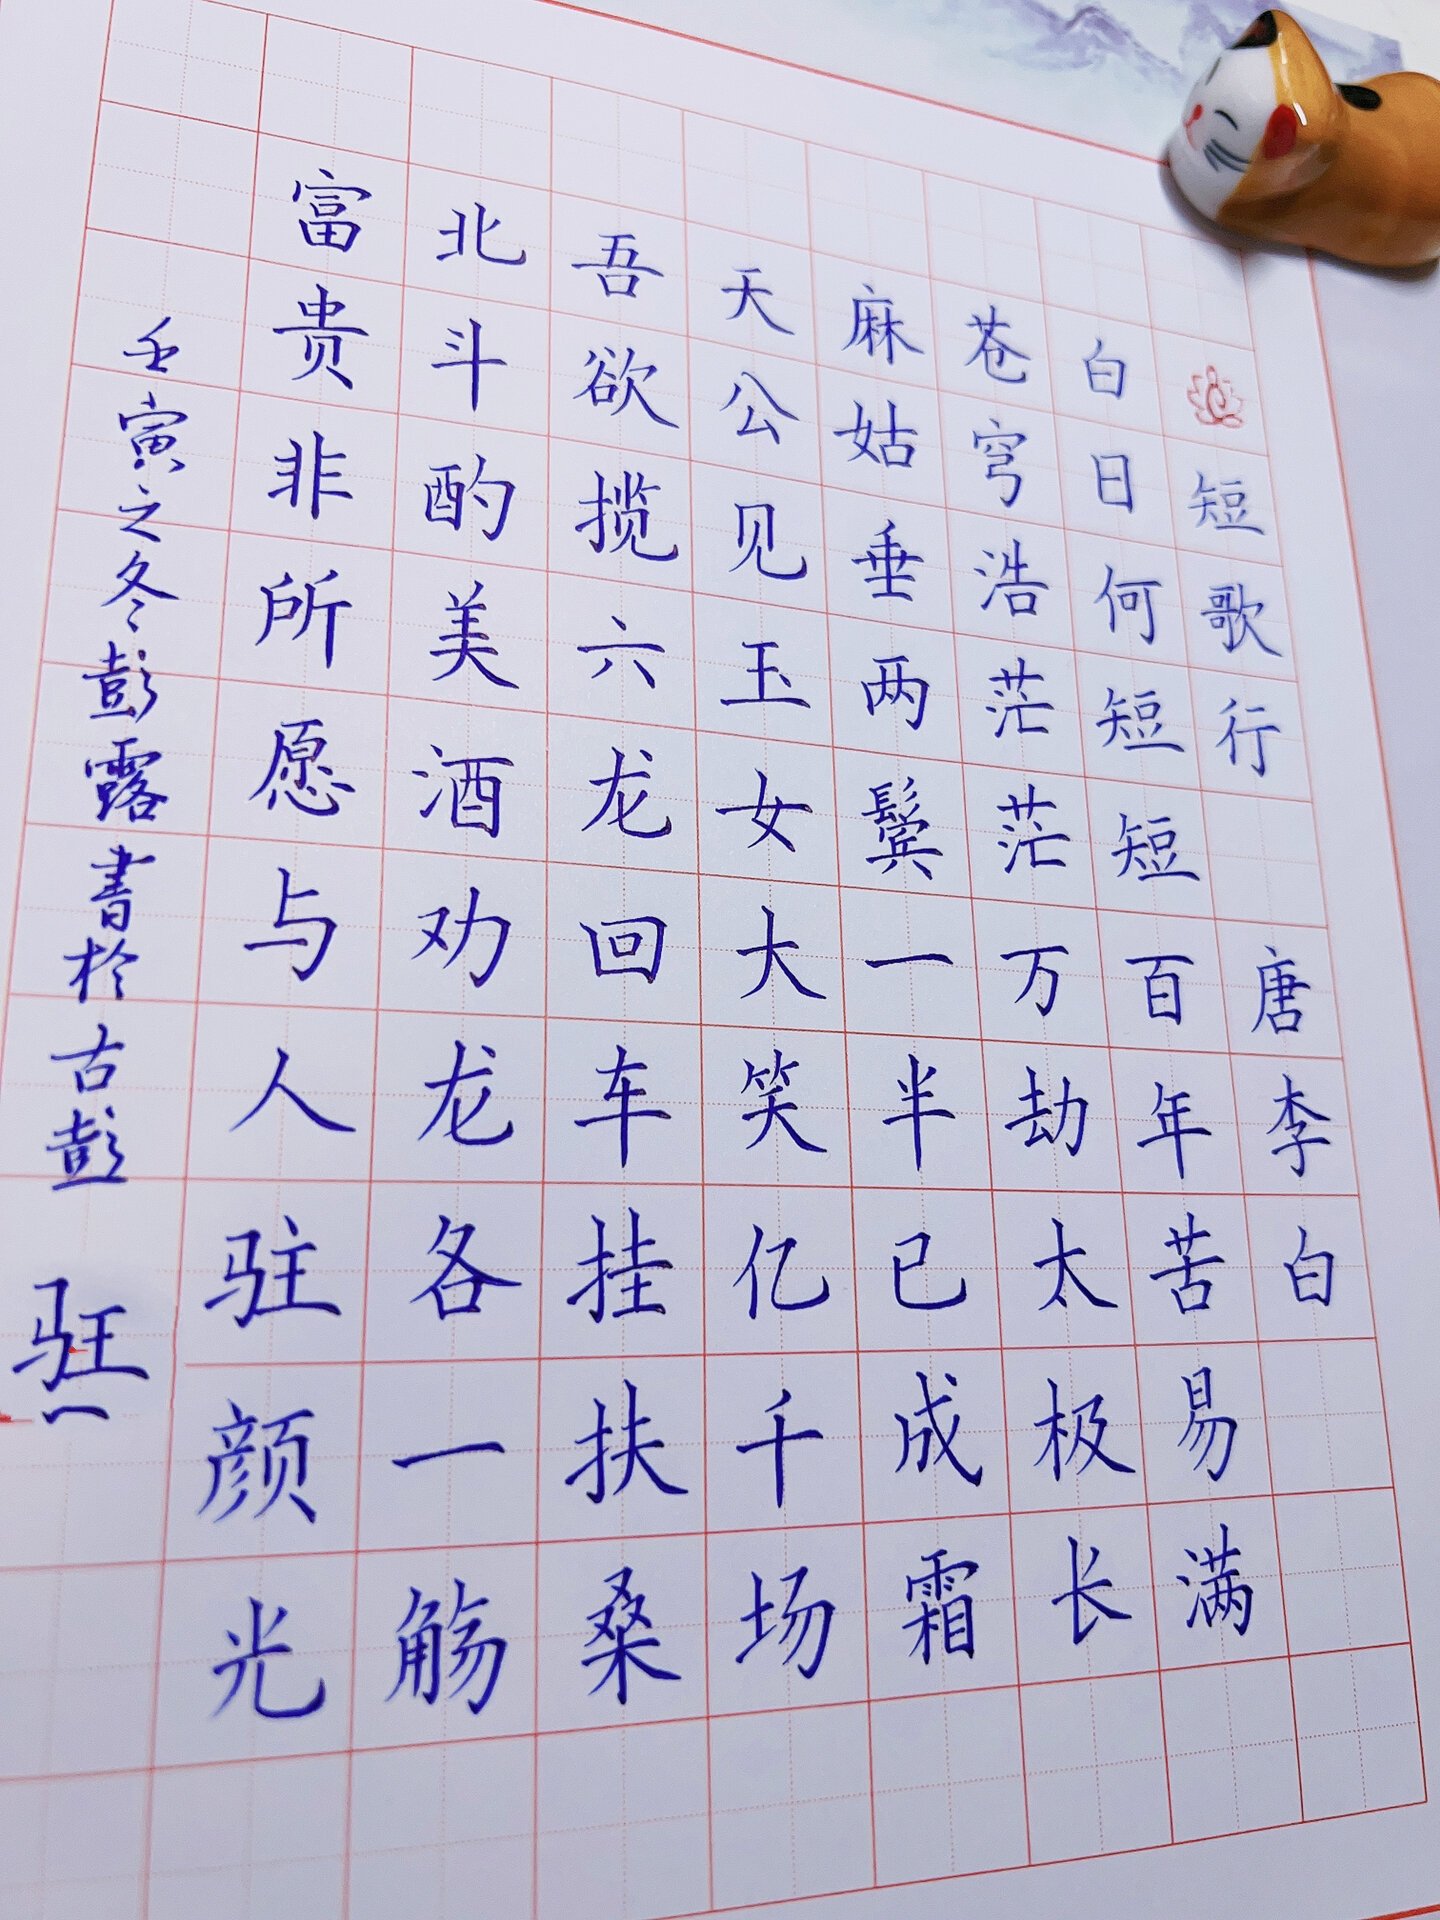 短歌行 唐李白
白日何短短百年苦易满
苍穹浩茫茫万劫太极长
麻姑垂两鬓一半已成霜
天公见玉女大笑亿千场
吾欲揽六龙回车挂扶桑
北斗酌美酒劝龙各一觞
富贵非所愿与人驻颜光
壬寅之冬彭露書於古彭
驻